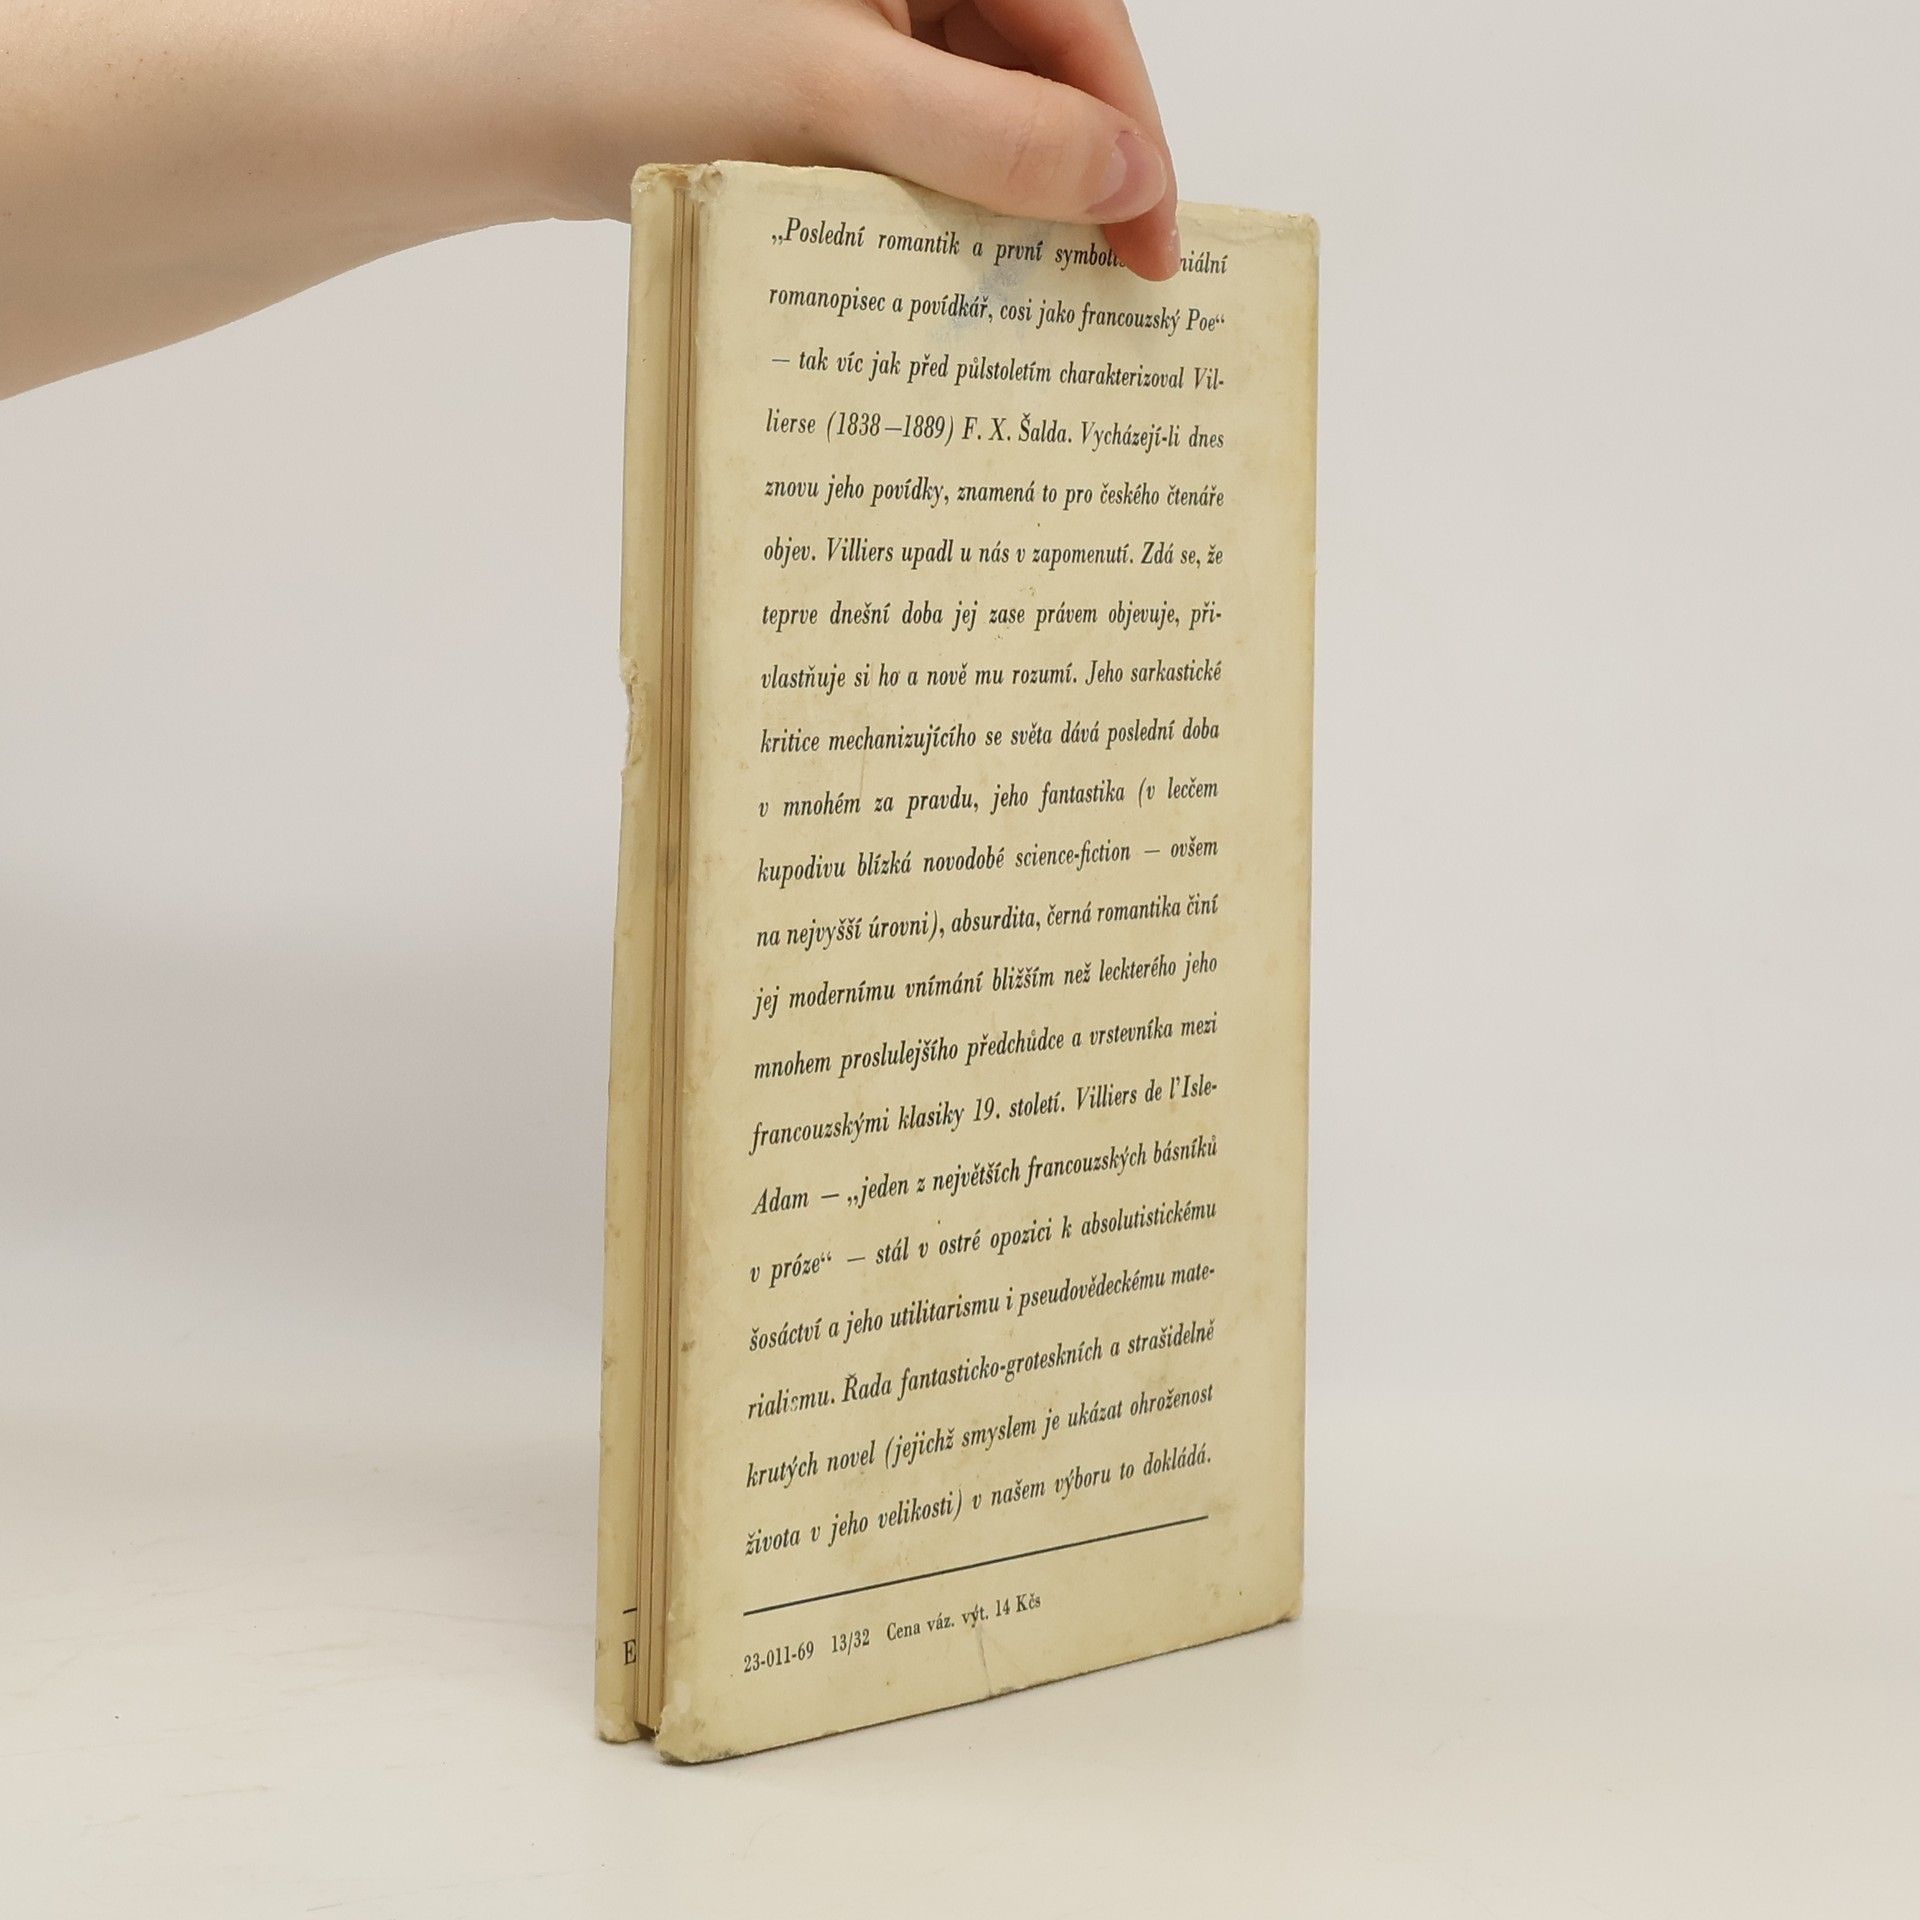 „Poslední romantik a první
romanopisec a povídkář, cosi jako francouzský Poe“
— tak víc jak před půlstoletím charakterizoval Vil-
lierse (1838—1889) F. X. Šalda. Vycházejí-li dnes
znovu jeho povídky, znamená to pro českého čtenáře
objev. Villiers upadl u nás v zapomenutí. Zdá se, že
teprve dnešní doba jej zase právem objevuje, při-
vlastňuje si ho a nově mu rozumí. Jeho sarkastické
kritice mechanizujícího se světa dává poslední doba
v mnohém za pravdu, jeho fantastika (v lecčem
kupodivu blízká novodobé science-fiction — ovšem
na nejvyšší úrovni), absurdita, černá romantika činí
jej modernímu vnímání bližším než leckterého jeho
mnohem proslulejšího předchůdce a vrstevníka mezi
francouzskými klasiky 19. století. Villiers de l'Isle-
Adam — „jeden z největších francouzských básníků
v próze“ — stál v ostré opozici k absolutistickému
šosáctví a jeho utilitarismu i pseudovědeckému mate-
rialismu. Řada fantasticko-groteskních a strašidelně
krutých novel (jejichž smyslem je ukázat ohroženost
života v jeho velikosti) v našem výboru to dokládá.
23-011-69 13/32 Cena váz. výt. 14 Kčs
E